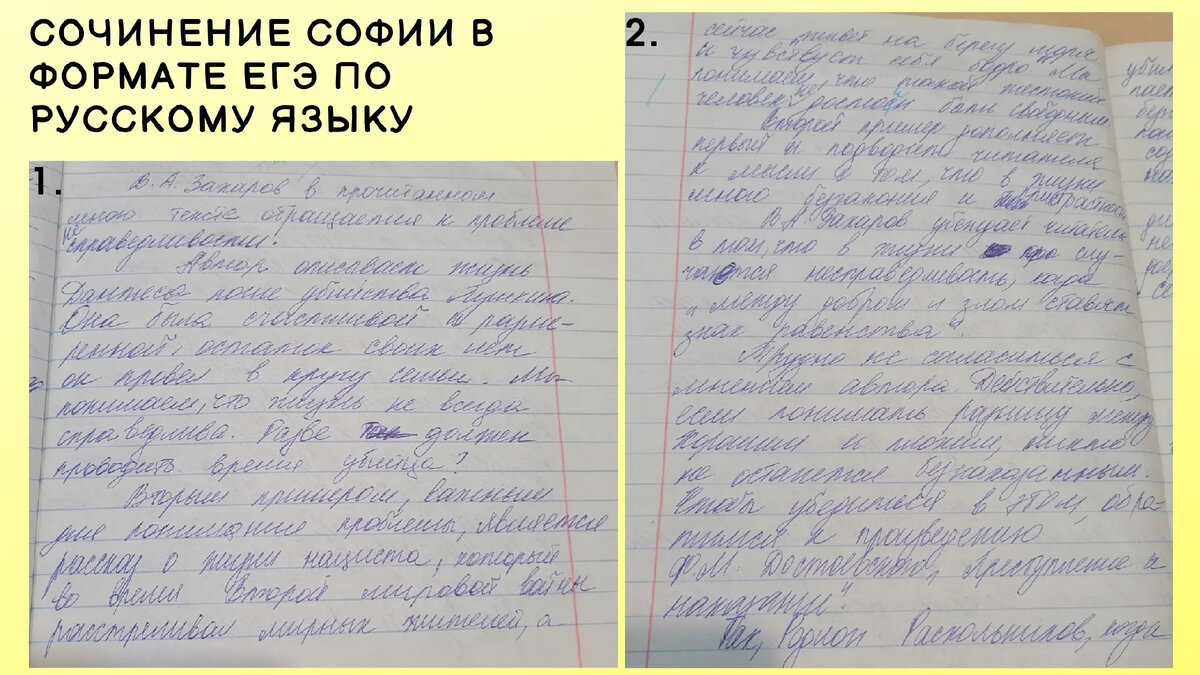 СОЧИНЕНИЕ СОФИИ В
ФОРМАТЕ ЕГЭ ПО
РУССКОМУ ЯЗЫКУ
1.
В. А. Захаров в прочитанном
мною тексте обращается к проблеме
несправедливости.
Автор описывает жизнь
Дантеса после убийства Пушкина.
Она была счастливой и разме-
ренной, остаток своих лет
он провел в кругу семьи. Мы
понимаем, что жизнь не всегда
справедлива. Разве должен
проводить время убийца?
Вторым примером, важным
для понимание проблемы, является
рассказ о жизни нациста, который
во время Второй мировой войны
расстреливал мирных жителей, а
2.
сейчас живёт на берегу моря
и чувствует себя бодро. Мы
понимаем, что такой жестокий
человек не достоин быть свободным.
Второй пример дополняет
первый и подводит читателя
к мысли о том, что в жизни
много беззакония и
В.А. Захаров убеждает читателя
в том, что в жизни слу-
чается несправедливость, когда
"между добром и злом ставят
знак равенства".
Трудно не согласиться с
мнением автора. Действительно,
если понимать разницу между
хорошим и плохим, никто
не останется безнаказанным.
Чтобы убедиться в этом, обра-
тимся к произведению
Ф.М. Достоевского "Преступление и
наказание".
Так, Родион Раскольников, когда